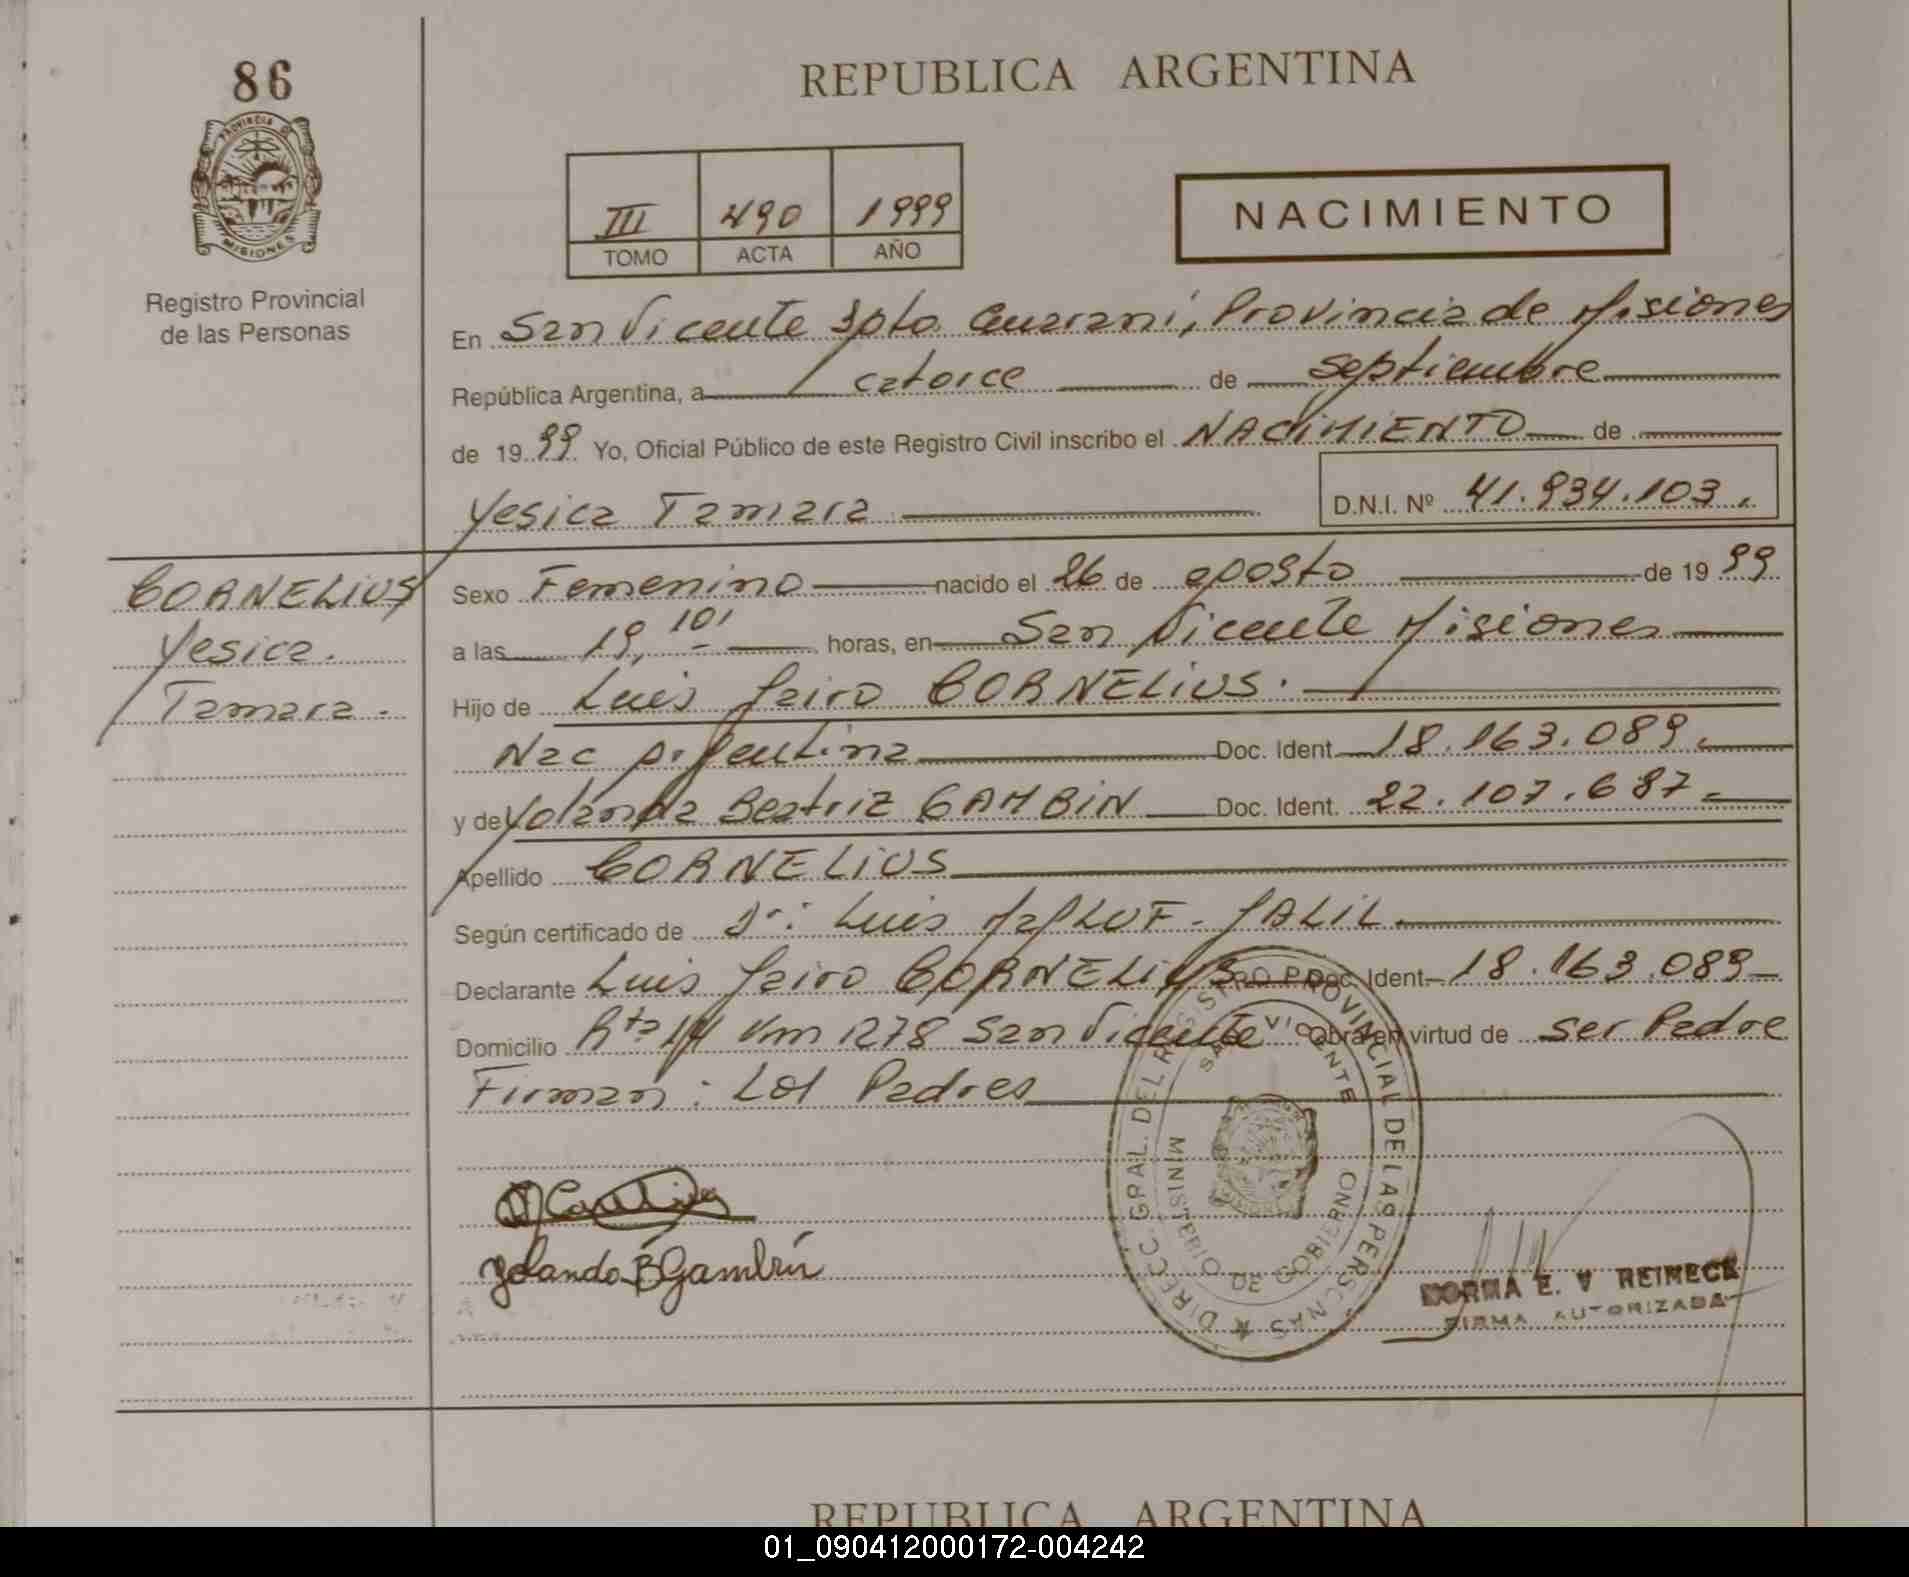 86
PROVINCIA DE
MISIONES
Registro Provincial
de las Personas
REPUBLICA ARGENTINA
III 490 1999
TOMO ACTA AÑO
NACIMIENTO
En San Vicente Dpto Guarani, Provincia de Misiones
República Argentina, a catorce de septiembre
de 1999 Yo, Oficial Público de este Registro Civil inscribo el NACIMIENTO de
Yesica Tamara D.N.I. Nº 41.934.103.
CORNELIUS
Yesica.
Tamara.
Sexo Femenino nacido el 26 de agosto de 1999
a las 19,10' horas, en San Vicente Misiones
Hijo de Luis Jairo CORNELIUS.
Nac Argentina Doc. Ident. 18.163.089.
y de Yolanda Beatriz GAMBIN Doc. Ident. 22.107.687.
Apellido CORNELIUS
Según certificado de Dr: Luis JALIL
Declarante Luis Jairo CORNELIUS Doc. Ident 18.163.089
Domicilio Rta 14 Km 1278 San Vicente Obra en virtud de ser Padre
Firman: Los Padres
Yolanda B Gambín
DIRECC. GRAL. DEL REGISTRO PROVINCIAL DE LAS PERSONAS
SAN VICENTE
MINISTERIO DE GOBIERNO
NORMA E. V REINECK
FIRMA AUTORIZADA
REPUBLICA ARGENTINA
01_090412000172-004242